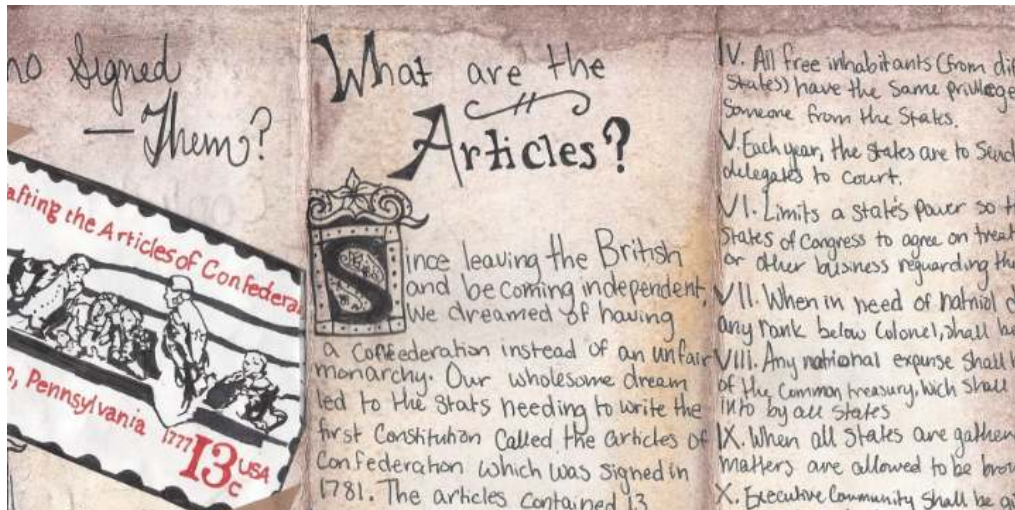 no Signed
— Them?
afting the Articles of Confedera
n, Pennsylvania 1777 13c USA
What are the
Articles?
Since leaving the British
and becoming independent,
We dreamed of having
a confederation instead of an unfair
monarchy. Our wholesome dream
led to the stats needing to write the
first Constitution Called the articles of
Confederation which was signed in
1781. The articles contained 13
IV. All free inhabitants (from dif
states) have the same privilege
Someone from the States.
V. Each year, the states are to Send
delegates to court.
VI. Limits a state's power so th
States of Congress to agree on treat
or other business reguarding the
VII. When in need of
any rank below Colonel, shall be
VIII. Any national expense shall b
of the Common treasury, wich shall
into by all states
IX. When all states are gathere
matters are allowed to be brou
X. Executive Community shall be gi